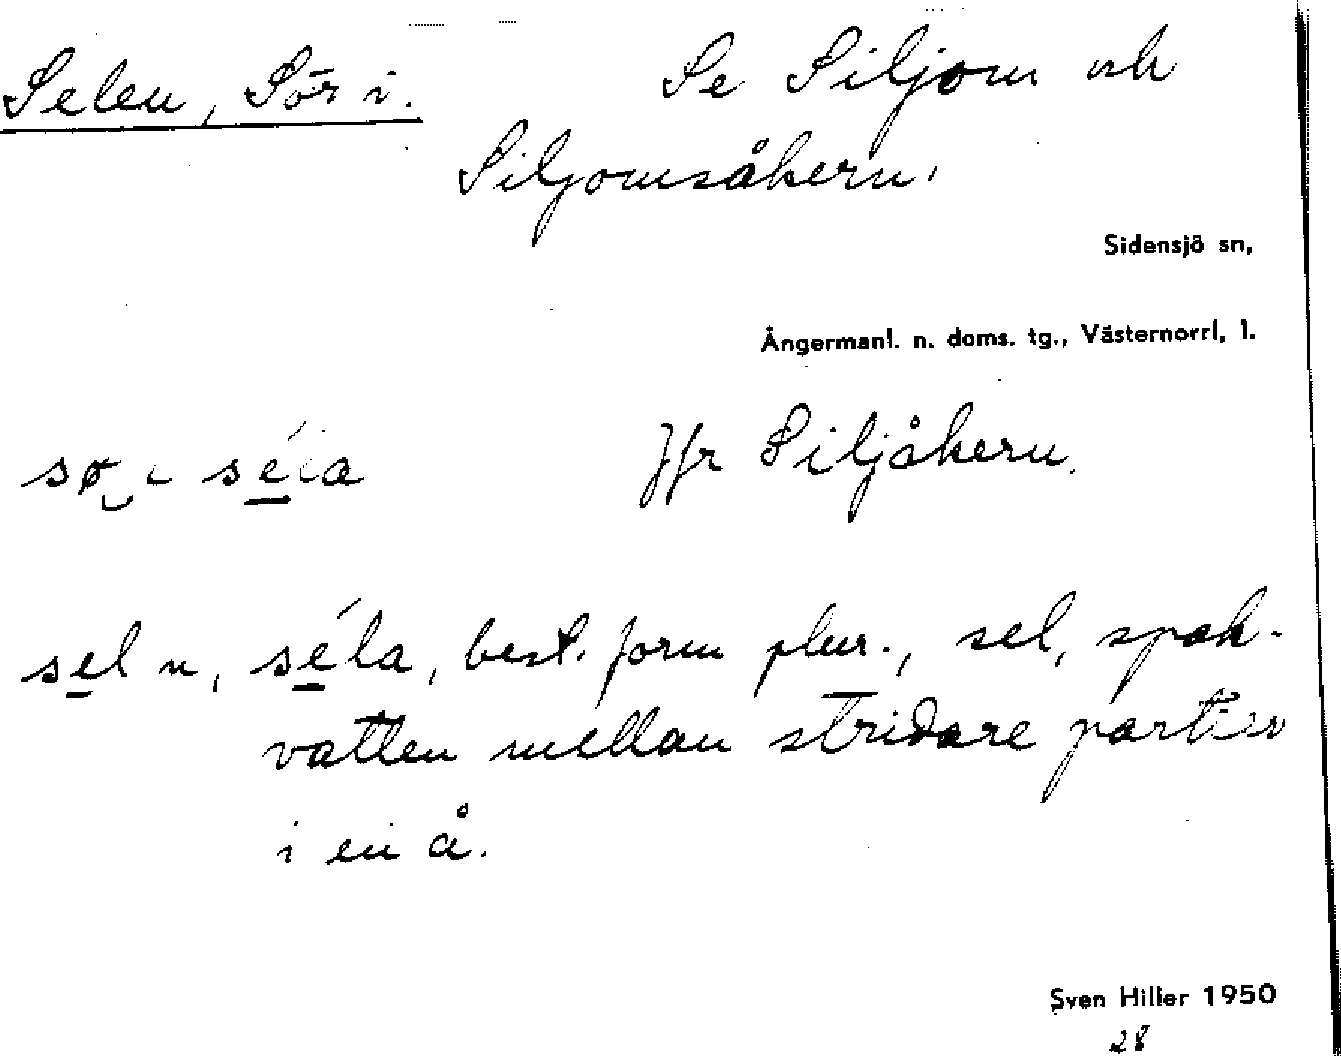 Selen, Sör i. Se Siljom och
Siljomsåkern.
Sidensjö sn,
Ångermanl. n. doms. tg., Västernorrl. l.
Jfr Siljåkern.
sel n, séla, best. form plur., sel, spak-
vatten mellan stridare partier
i en å.
Sven Hiller 1950
28